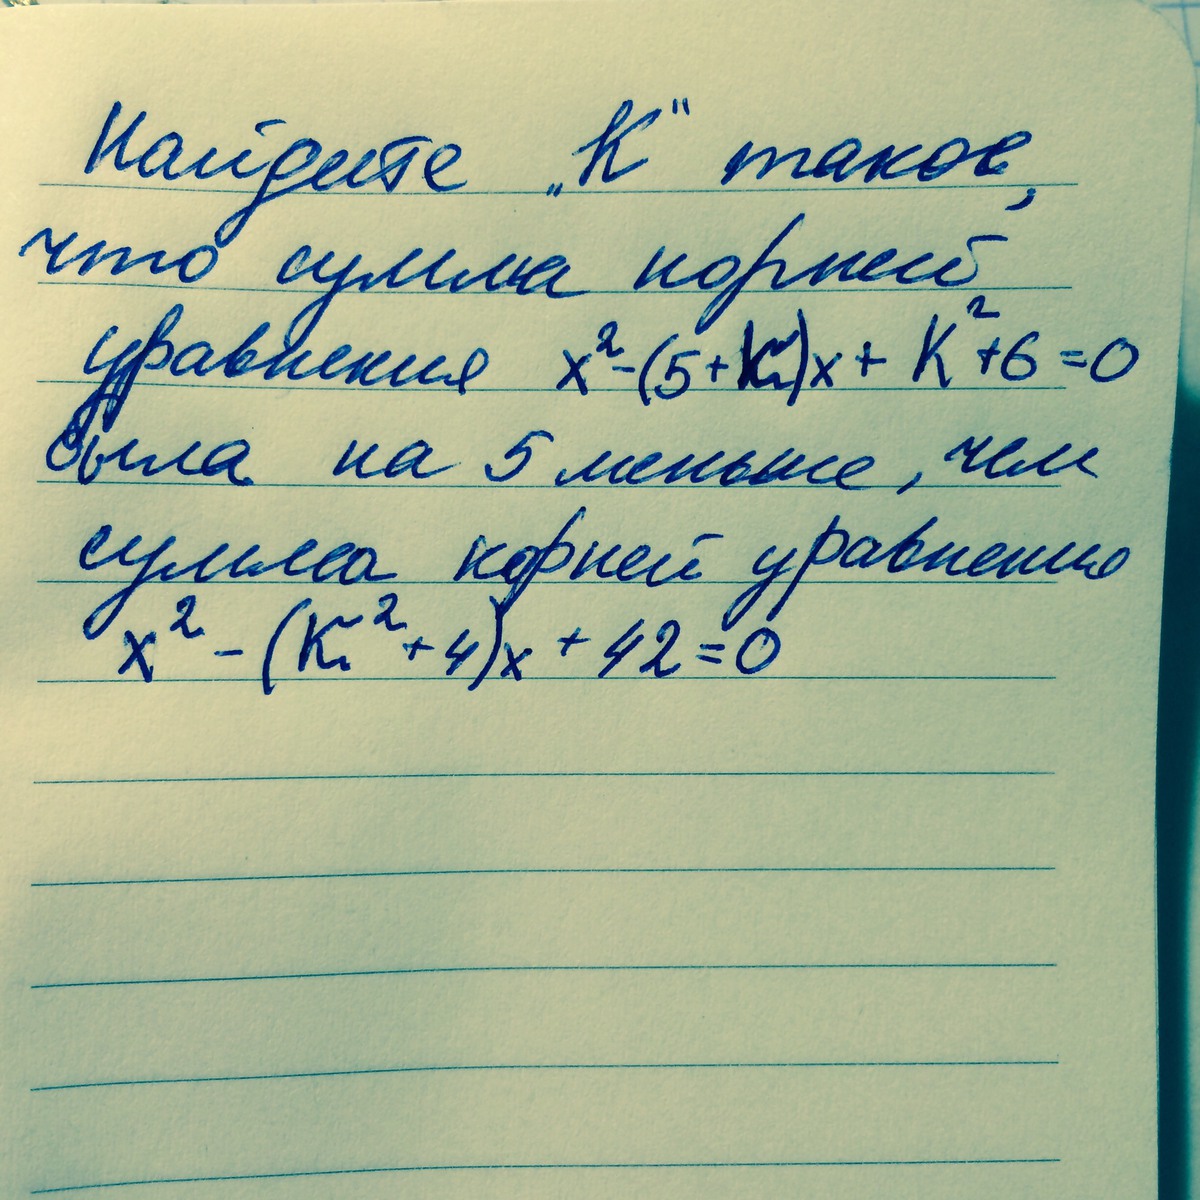 Найдите „К“ таков,
что сумма корней
уравнения x²-(5+К)x+ К²+6=0
была на 5 меньше, чем
сумма корней уравнения
x² - (К²+4)x + 42=0